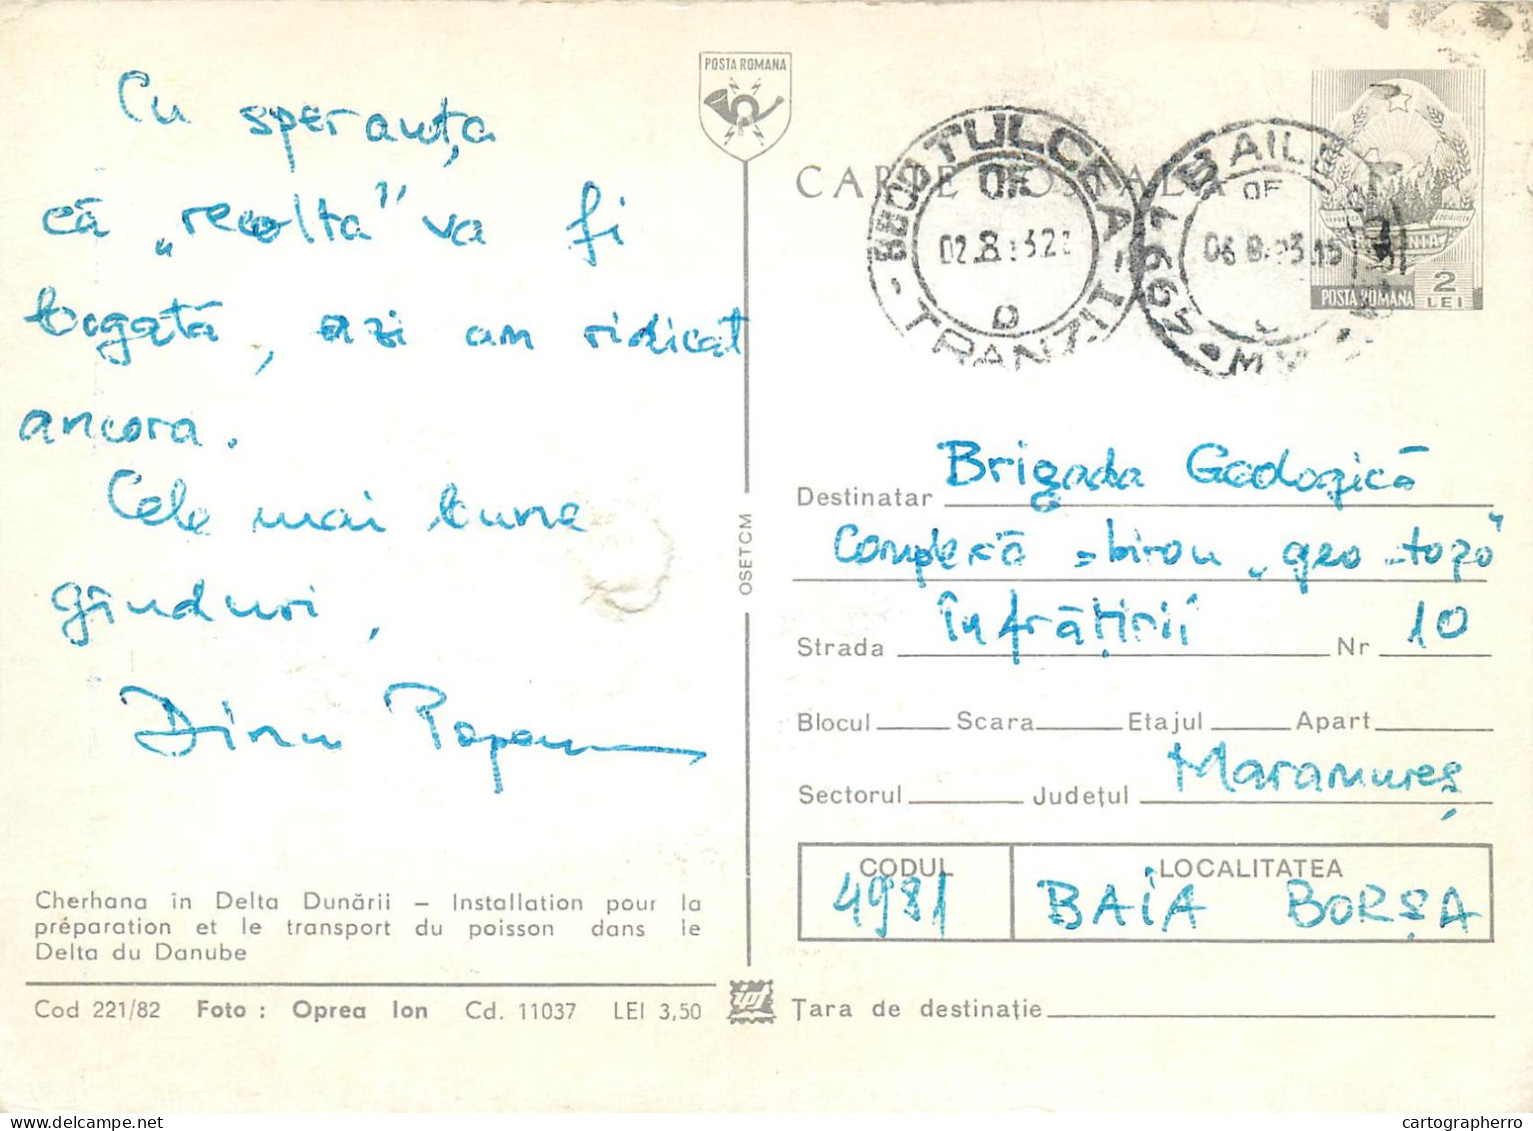 Cu speranța
că „recolta" va fi
bogată, azi am ridicat
ancora.
Cele mai bune
gânduri,
Dinu
Cherhana în Delta Dunării – Installation pour la
préparation et le transport du poisson dans le
Delta du Danube
Cod 221/82 Foto : Oprea Ion Cd. 11037 LEI 3,50
OSETCM
POSTA ROMANA
CARTE POSTALA
TULCEA - 1
OF
TRANZIT
OF
POSTA ROMANA
2
LEI
Destinatar Brigada Geologică
Complexă - birou „geo-topo"
Strada Înfrățirii Nr 10
Blocul Scara Etajul Apart
Sectorul Județul Maramureș
CODUL LOCALITATEA
4981 BAIA BORȘA
Țara de destinație
cartographerro